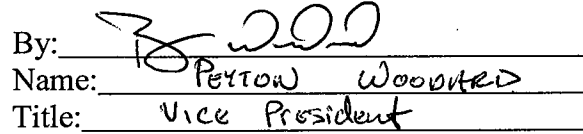 By:
Name: PEYTON WOODARD
Title: Vice President